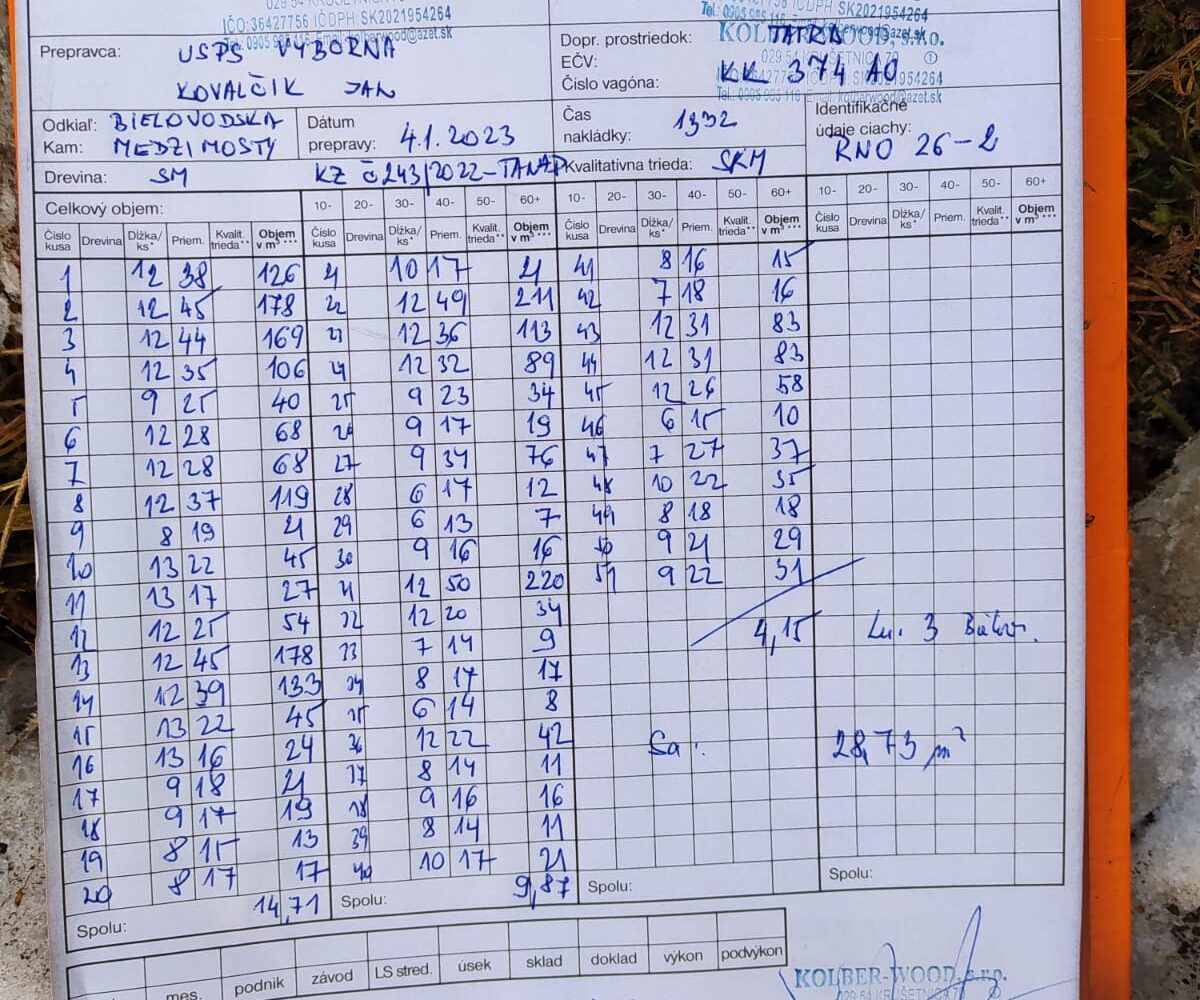 029 54 KRUŠETNICA 70
IČO:36427756 IČDPH SK2021954264
Tel.: 0905 985 116 Email: kolberwood@azet.sk
Prepravca: USPS VÝBORNA
KOVALČIK JAN
IČDPH SK2021954264
Tel.: 0905 985 116 Email: kolberwood@azet.sk
Dopr. prostriedok: TATRA
KOLBER-WOOD, s.r.o.
EČV:
029 54 KRUŠETNICA 70 ①
Číslo vagóna: KK 374 AO
IČO:36427756 IČDPH SK2021954264
Tel.: 0905 985 116 Email: kolberwood@azet.sk
Odkiaľ: BIELOVODSKA
Kam: MEDZIMOSTY
Dátum prepravy: 4.1.2023
Čas nakládky: 1332
Identifikačné údaje ciachy: RNO 26-2
Drevina: SM KZ č 243/2022-TANAP Kvalitatívna trieda: SKM
Celkový objem: 10- 20- 30- 40- 50- 60+ 10- 20- 30- 40- 50- 60+ 10- 20- 30- 40- 50- 60+
Číslo kusa Drevina Dĺžka/ks* Priem. Kvalit. trieda** Objem v m³*** Číslo kusa Drevina Dĺžka/ks* Priem. Kvalit. trieda** Objem v m³*** Číslo kusa Drevina Dĺžka/ks* Priem. Kvalit. trieda** Objem v m³*** Číslo kusa Drevina Dĺžka/ks* Priem. Kvalit. trieda** Objem v m³***
1 12 38 126 21 10 17 21 41 8 16 15
2 12 45 178 22 12 49 211 42 7 18 16
3 12 44 169 23 12 36 113 43 12 31 83
4 12 35 106 24 12 32 89 44 12 31 83
5 9 25 40 25 9 23 34 45 12 26 58
6 12 28 68 26 9 17 19 46 6 15 10
7 12 28 68 27 9 34 76 47 7 27 37
8 12 37 119 28 6 17 12 48 10 22 35
9 8 19 21 29 6 13 7 49 8 18 18
10 13 22 45 30 9 16 16 50 9 21 29
11 13 17 27 31 12 50 220 51 9 22 31
12 12 25 54 32 12 20 34 4,15
13 12 45 178 33 7 14 9
14 12 39 133 34 8 17 17
15 13 22 45 35 6 14 8
16 13 16 24 36 12 22 42 Sa: 28,73 m³
17 9 18 21 37 8 14 11
18 9 17 19 38 9 16 16
19 8 15 13 39 8 14 11
20 8 17 17 40 10 17 21
Spolu: 14,71 Spolu: 9,87 Spolu: Spolu:
mes. podnik závod LS stred. úsek sklad doklad výkon podvýkon
KOLBER-WOOD, s.r.o.
029 54 KRUŠETNICA 70 ①